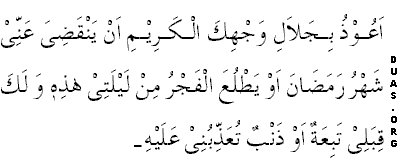 اَعُوْذُ بِجَلَالِ وَجْهِكَ الْكَرِيْمِ اَنْ يَنْقَضِىَ عَنِّىْ
شَهْرُ رَمَضَانَ اَوْ يَطْلُعَ الْفَجْرُ مِنْ لَيْلَتِىْ هٰذِهٖ وَ لَكَ
قِبَلِىْ تَبِعَةٌ اَوْ ذَنْبٌ تُعَذِّبُنِىْ عَلَيْهِ۔
DUAS.ORG